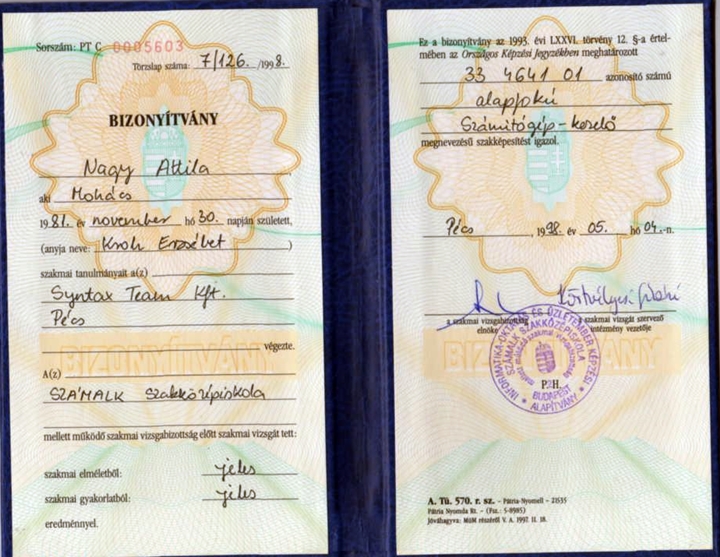 Sorszám: PT C 0005603
Törzslap száma: 7/126. /1998.
BIZONYÍTVÁNY
Nagy Attila
aki Mohács
1981. év november hó 30. napján született,
(anyja neve: Kroh Erzsébet)
szakmai tanulmányait a(z)
Syntax Team Kft.
Pécs
végezte.
BIZONYÍTVÁNY
A(z)
SZÁMALK Szakközépiskola
mellett működő szakmai vizsgabizottság előtt szakmai vizsgát tett:
szakmai elméletből: jeles
szakmai gyakorlatból: jeles
eredménnyel.
Ez a bizonyítvány az 1993. évi LXXVI. törvény 12. §-a értel-
mében az Országos Képzési Jegyzékben meghatározott
33 4641 01 azonosító számú
alapfokú
Számítógép-kezelő
megnevezésű szakképesítést igazol.
Pécs, 1998. év 05. hó 04.-n.
a szakmai vizsgabizottság szakmai vizsgát szervező
elnöke intézmény vezetője
INFORMATIKA-OKTATÁSI ÉS ÜZLETEMBER KÉPZÉSI ALAPÍTVÁNY
SZÁMALK SZAKKÖZÉPISKOLA
P.H.
BUDAPEST
A. Tü. 570. r. sz. – Pátria-Nyomell – 21535
Pátria Nyomda Rt. – (Fsz.: 5-8985)
Jóváhagyva: MüM részéről V. A. 1997. II. 18.